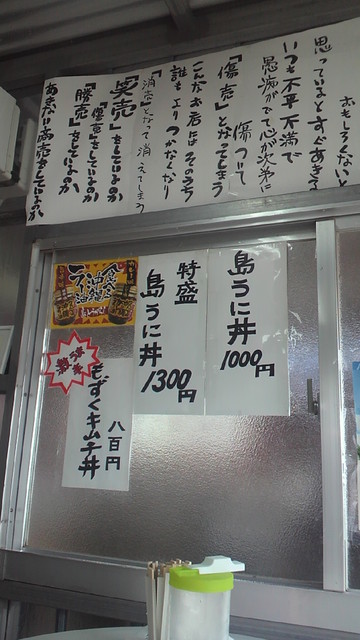 おもしろくないと
思っているとすぐあきる
いつも不平不満で
愚痴がでて心が次第に
傷ついて
「傷売」となってしまう
こんなお店にはそのうち
誰もよりつかなくなり
「消売」となって消えてしまう
「笑売」をしているのか
「傷売」をしているのか
「勝売」をしているのか
あきない商売をしているのか
島うに丼
1000円
特盛
島うに丼
1300円
食べる
油
ラー
もずくキムチ丼
八百円